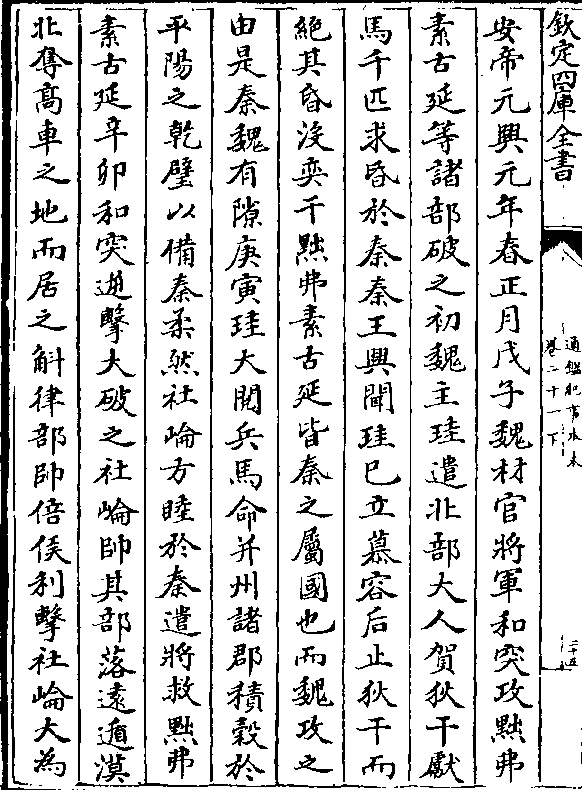 欽定四庫全書
通鑑紀事本末
卷二十一下
二十五
安帝元興元年春正月戊子魏材官將軍和突攻黜弗
素古延等諸部破之初魏主珪遣北部大人賀狄干獻
馬千匹求昏於秦秦王興聞珪已立慕容后止狄干而
絶其昏沒奕干黜弗素古延皆秦之屬國也而魏攻之
由是秦魏有隙庚寅珪大閱兵馬命并州諸郡積穀於
平陽之乾壁以備秦柔然社崘方睦於秦遣將救黜弗
素古延辛卯和突逆擊大破之社崘帥其部落遠遁漠
北奪髙車之地而居之斛律部帥倍侯利擊社崘大為